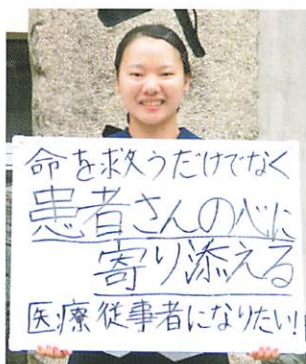 命を救うだけでなく
患者さんの心に
寄り添える
医療従事者になりたい!